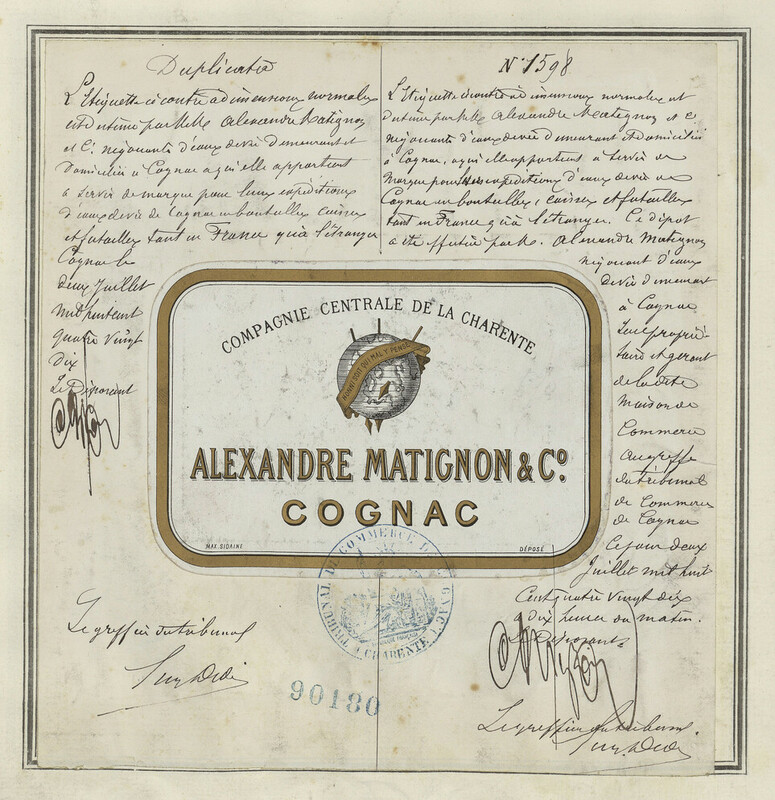 Duplicata
L'Etiquette ci contre a dimensions normales
est détenue par MM. Alexandre Matignon
et Cie. négociants d'eaux de vie demeurant et
domiciliés à Cognac a qui elle appartient
à servir de marque pour leurs expéditions
d'eaux de vie de Cognac en bouteilles caisses
et futailles tant en France qu'à l'étranger
Cognac le
deux Juillet
mil huit cent
quatre vingt
dix
Le Déposant
Le greffier du tribunal
N° 1598
L'Etiquette ci contre a dimensions normales est
détenue par MM. Alexandre Matignon et Cie.
négociants d'eaux de vie demeurant et domiciliés
à Cognac, a qui elle appartient à servir de
marque pour expéditions d'eaux de vie de
Cognac en bouteilles, caisses et futailles
tant en France qu'à l'étranger. Ce dépôt
a été effectué par M. Alexandre Matignon
négociant d'eaux
de vie demeurant
à Cognac
seul proprié-
taire et gérant
de la dite
Maison de
Commerce
au greffe
du tribunal
de Commerce
de Cognac
Ce jour deux
Juillet mil huit
Cent quatre vingt dix
à dix heures du matin.
Le Déposant
Le greffier du tribunal
COMPAGNIE CENTRALE DE LA CHARENTE
HONNI SOIT QUI MAL Y PENSE
ALEXANDRE MATIGNON & Co.
COGNAC
MAX. SIDAINE
DÉPOSÉ
TRIBUNAL DE COMMERCE DE COGNAC
(CHARENTE)
90180